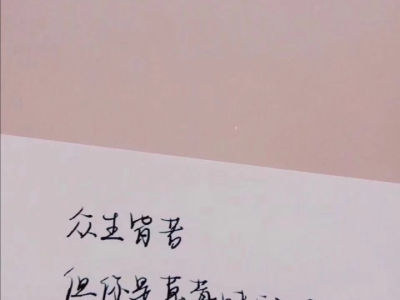 众生皆苦
但你是草莓味